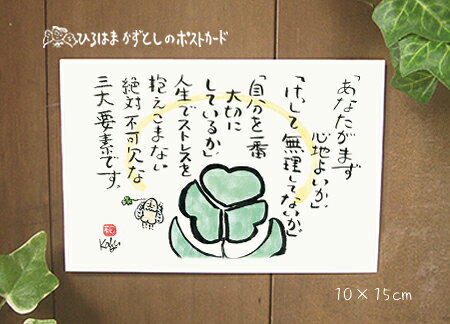 ひろはまかずとしのポストカード
「あなたがまず
心地よいか」
「けして無理してないか」
「自分を一番
大切に
しているか」
人生でストレスを
抱えこまない
絶対不可欠な
三大要素です。
Kazu
10×15cm